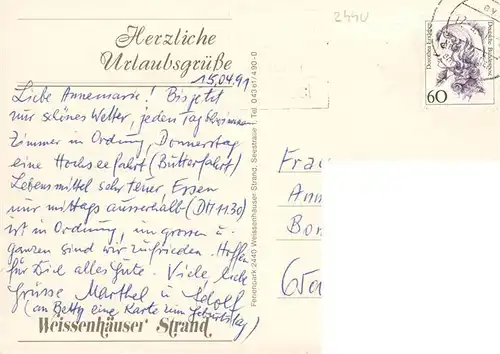 2440
Herzliche
Urlaubsgrüße
15.04.91
Liebe Annemarie! Bis jetzt
nur schönes Wetter, jeden Tag schwimmen
Zimmer in Ordnung, Donnerstag
eine Hochseefahrt (Butterfahrt)
Lebensmittel sehr teuer, Essen
nur mittags ausserhalb (DM 11.30)
ist in Ordnung, im grossen u.
ganzen sind wir zufrieden. Hoffen
für Dich alles Gute. Viele liebe
Grüsse Marthel u. Adolf
(an Betty eine Karte zum Geburtstag)
Weissenhäuser Strand
Ferienpark 2440 Weissenhäuser Strand, Seestrasse 1, Tel. 04361/490-0
Deutsche Bundespost
60
Frau
Ann